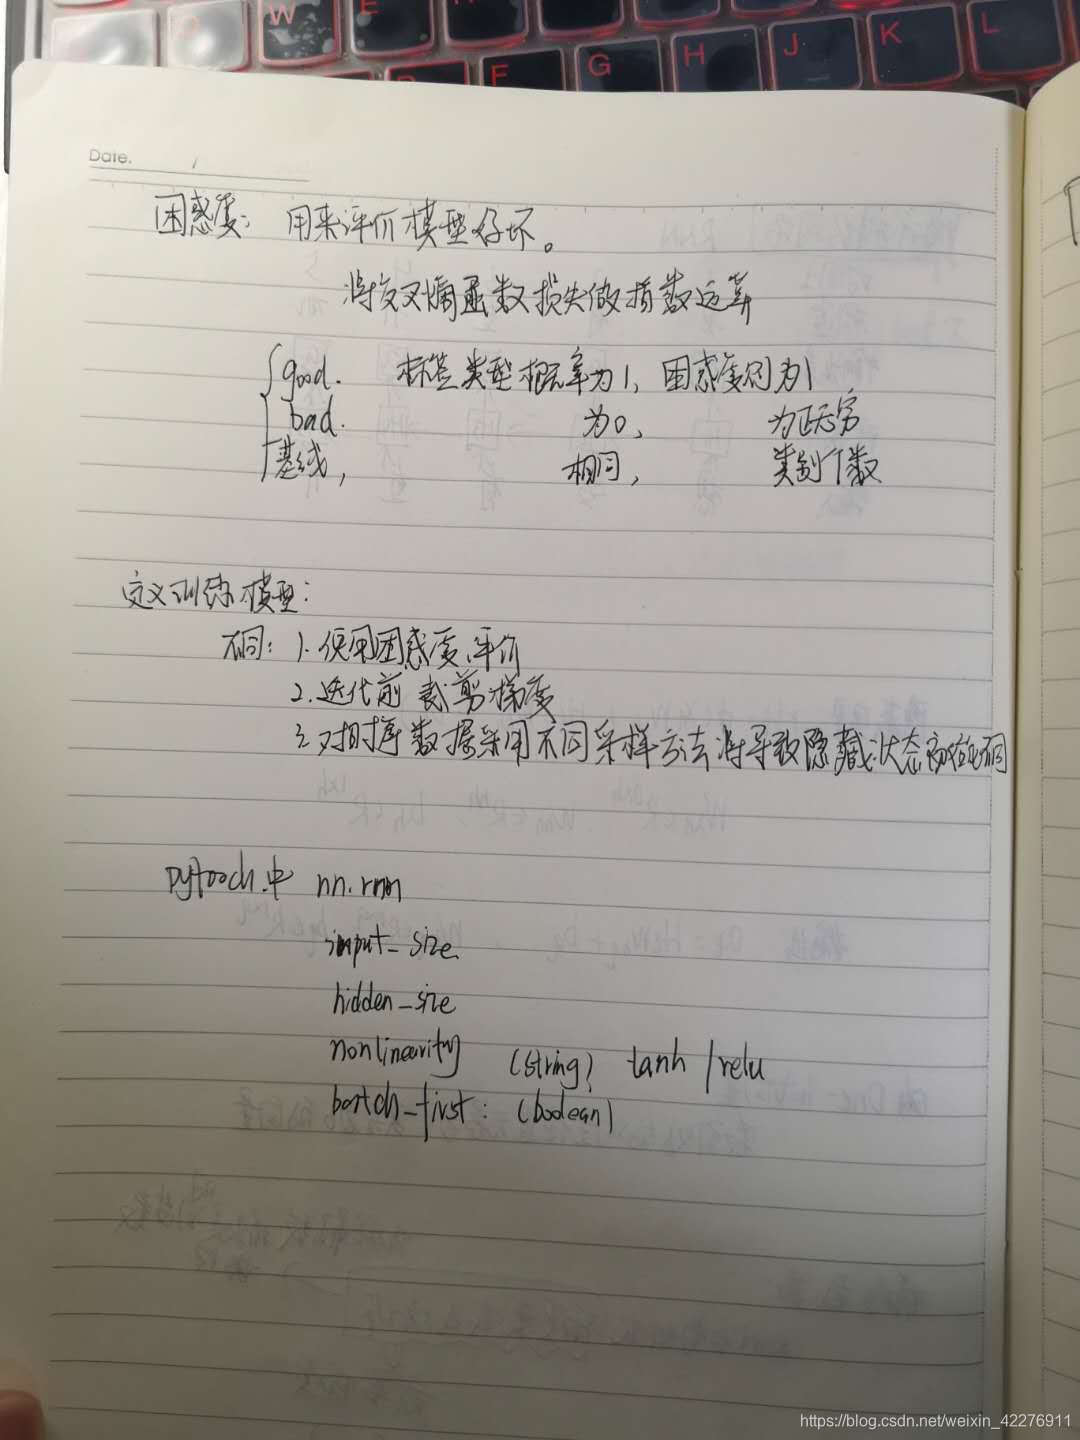 W
F
G
H
J
K
L
Date.
困惑度: 用来评价模型好坏。
将交叉熵函数损失做指数运算
good. 标签类型概率为1, 困惑度则为1
bad. 为0, 为正无穷
基线, 相同, 类别个数
定义训练模型:
不同: 1. 使用困惑度评价
2. 迭代前裁剪梯度
3. 对时序数据采用不同采样方法将导致隐藏状态初始化不同
pytorch中 nn.rnn
input_size
hidden_size
nonlinearity (string) tanh /relu
batch_first: (boolean)
https://blog.csdn.net/weixin_42276911